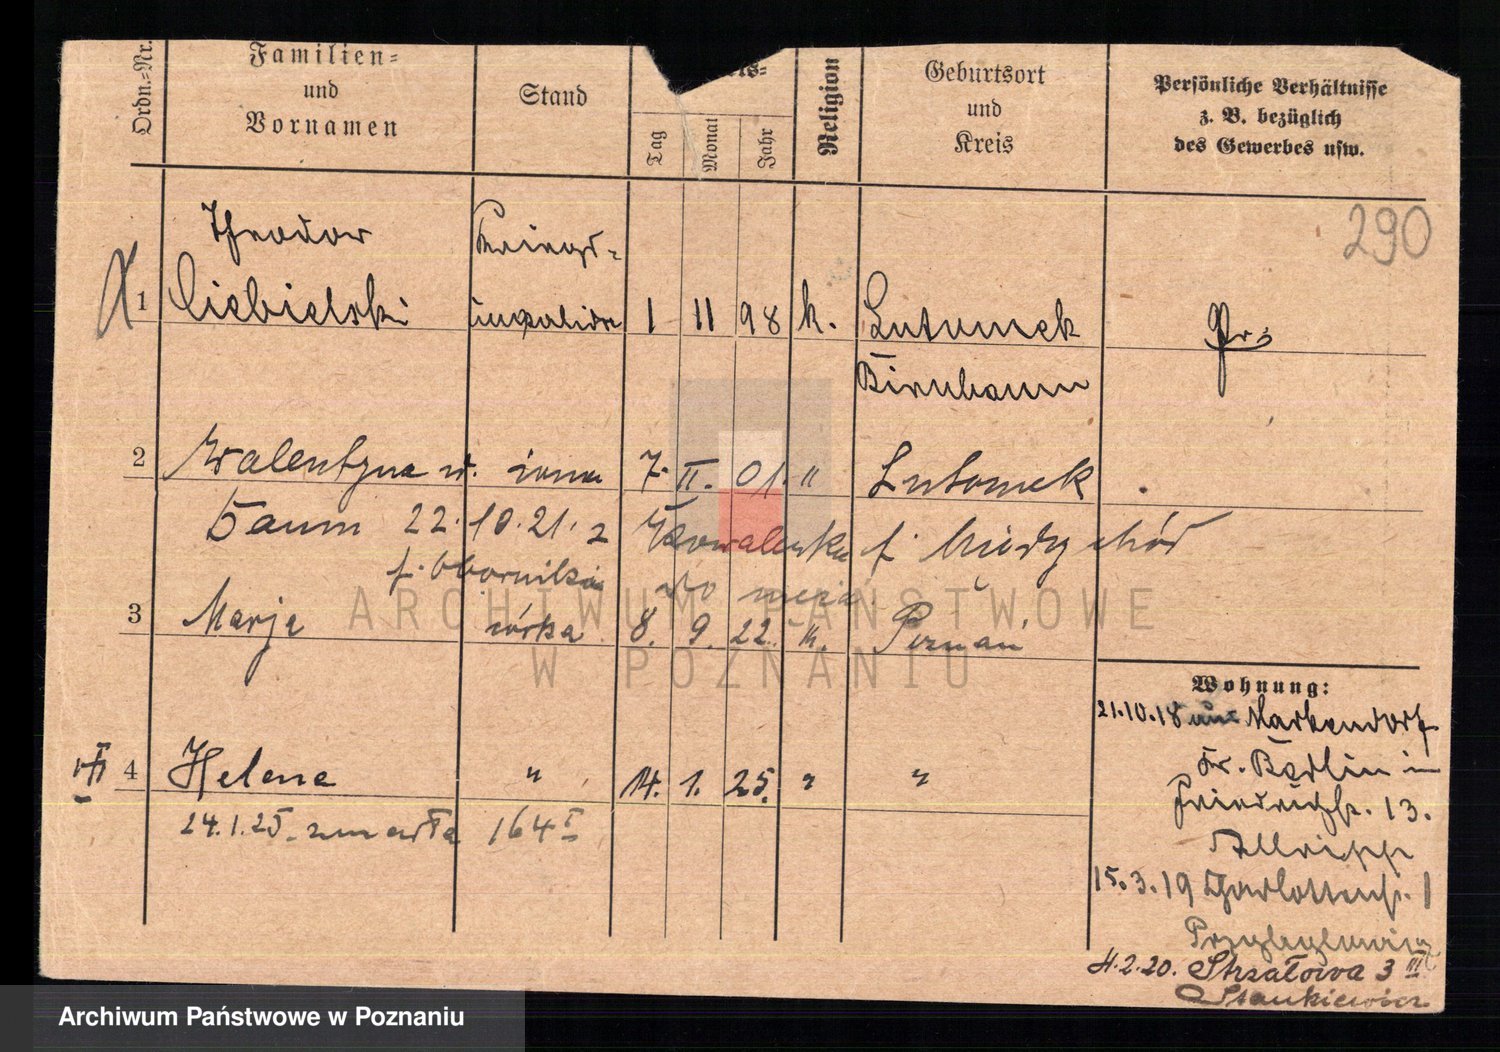 Ordn.-Nr.
Familien-
und
Vornamen
Stand
Tag
Monat
Jahr
Religion
Geburtsort
und
Kreis
Persönliche Verhältnisse
z. B. bezüglich
des Gewerbes usw.
290
Theodor
Kriegs-
1 Ciebielski
invalide
1 11 98 k. Lutomek
Pr.
Birnbaum
2 Walentyna u. żona 7. II. 01. " Lutomek
Baum 22.10.21. z Kowalewska f. Międzychód
f. Obornikia
do męża
3 Marja córka 8. 9. 22. k. Poznań
Wohnung:
21.10.18 aus Markendorf
Kr. Berlin in
Friedrichstr. 13.
15.3.19 Charlottenstr. 1
4.2.20. Strzałowa 3 III
Stankiewicz
4 Helena " 14. 1. 25. " "
24.1.25. zmarła 164 I
ARCHIWUM PAŃSTWOWE
W POZNANIU
Archiwum Państwowe w Poznaniu